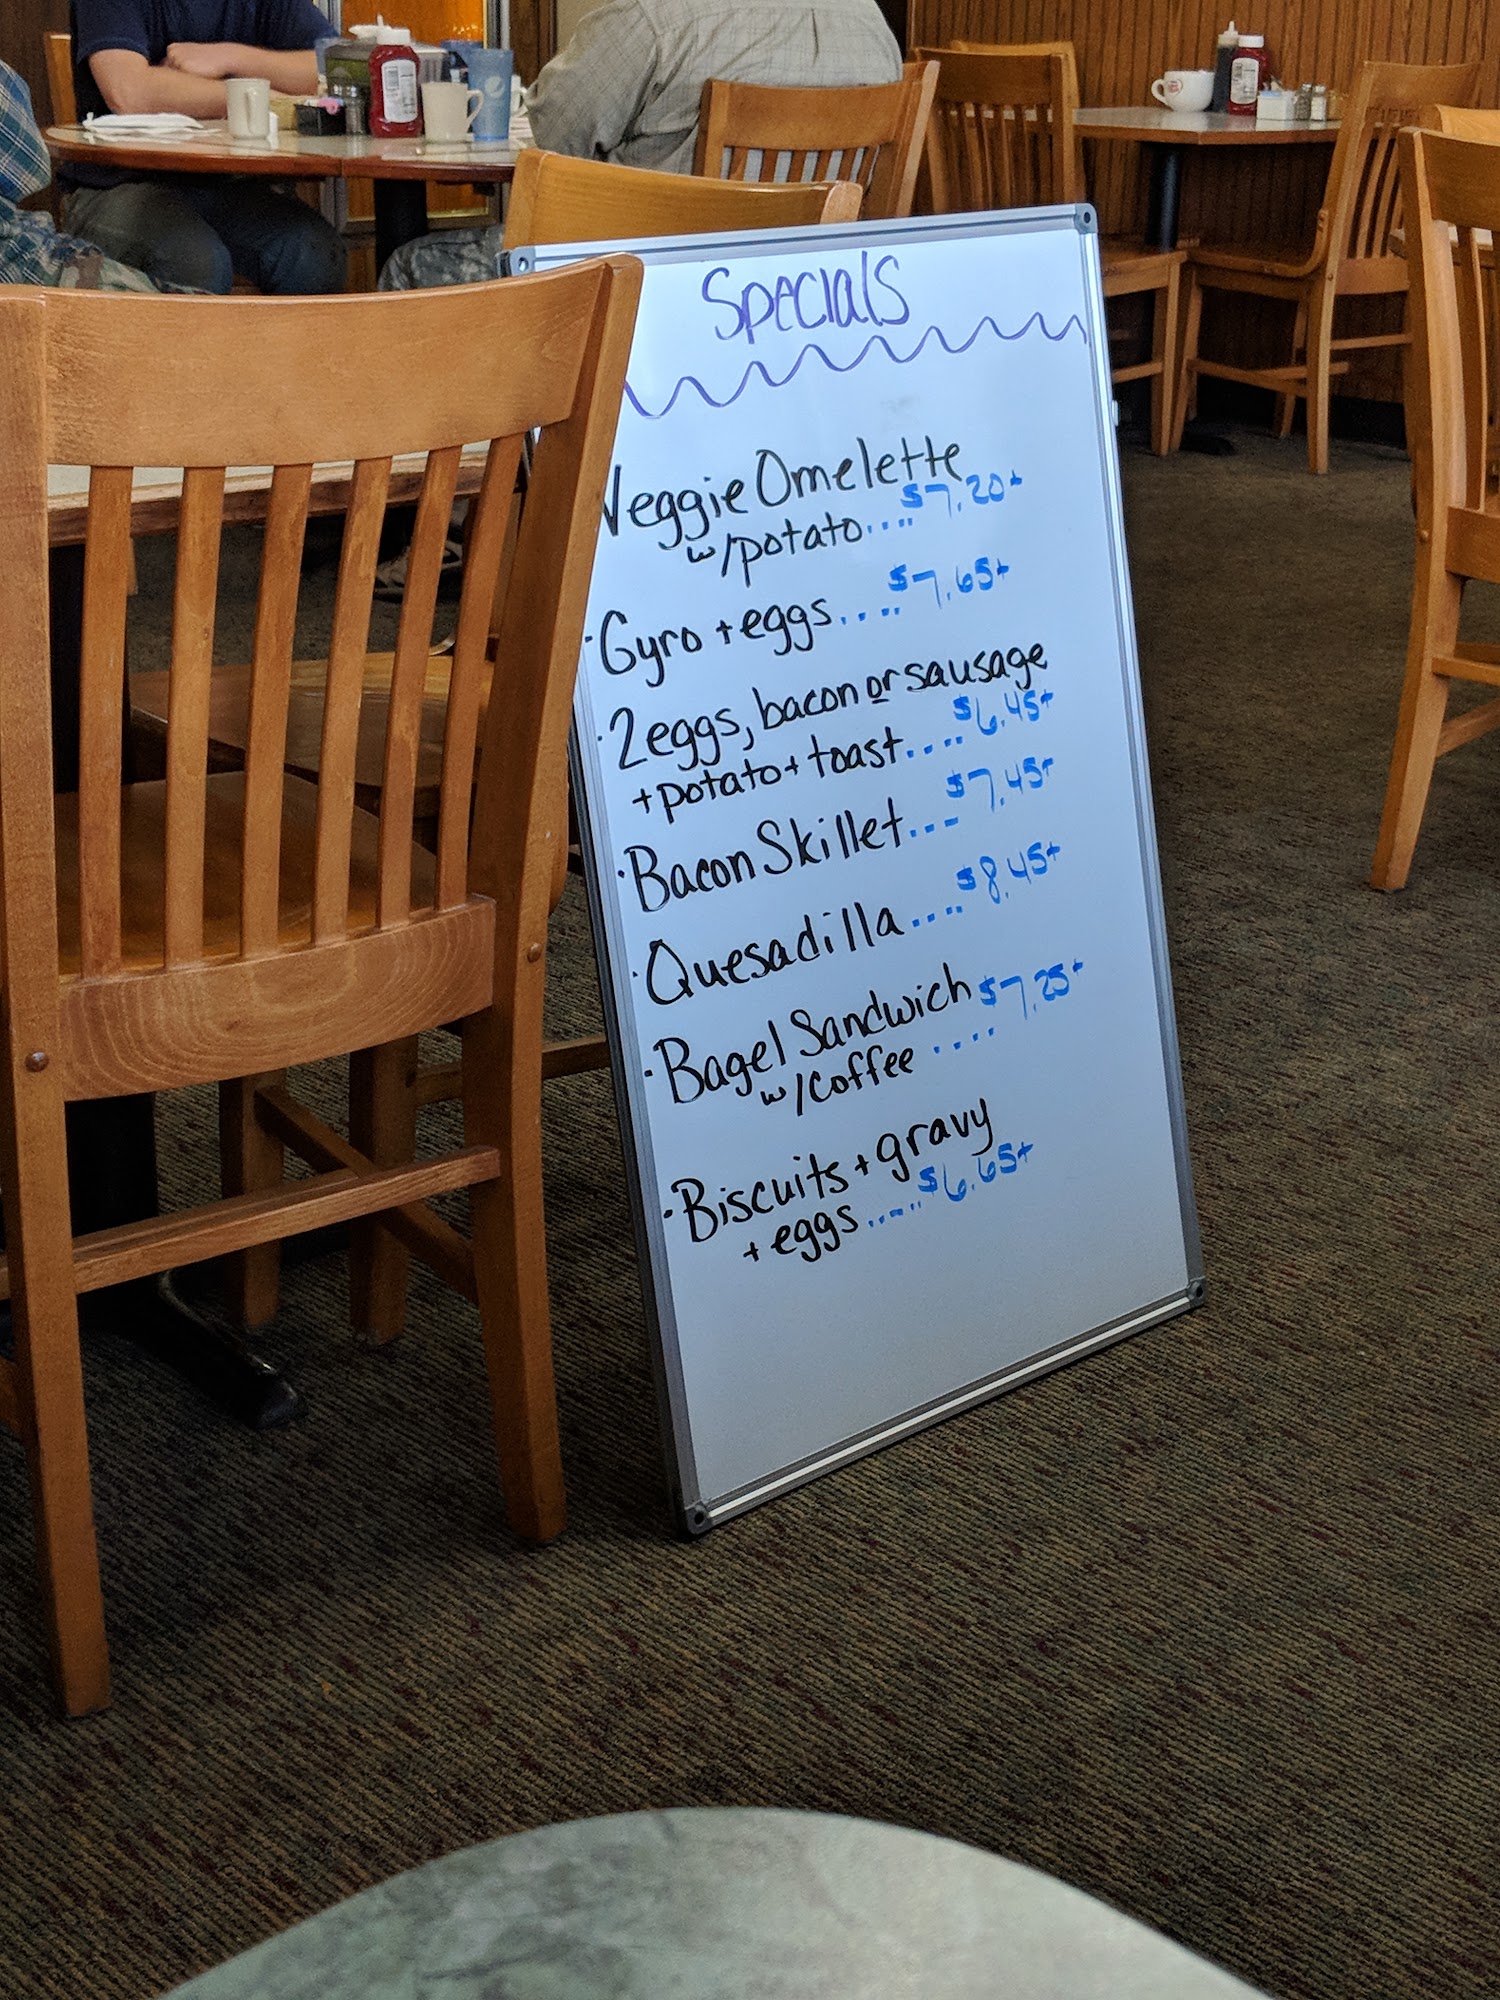 Specials
Veggie Omelette
w/potato....$7.20+
·Gyro + eggs.....$7.65+
·2 eggs, bacon or sausage
+potato + toast....$6.45+
·Bacon Skillet....$7.45+
·Quesadilla....$8.45+
·Bagel Sandwich $7.25+
w/coffee ....
·Biscuits + gravy
+ eggs......$6.65+